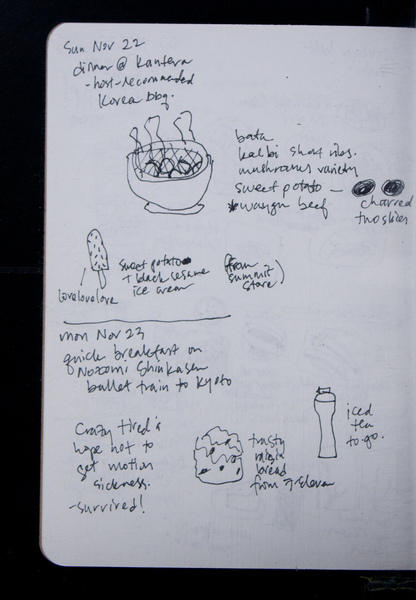 Sun Nov 22
dinner @ Kantera
- host-recommended
Korea bbq.
bata
kalbi short ribs.
mushrooms variety
sweet potato -
*waygu beef
charred
two slices
sweet potato
+ black sesame
ice cream
(from
summit
store)
lovelovelove
mon Nov 23
quick breakfast on
Nozomi Shinkasen
bullet train to Kyoto
Crazy tired &
hope not to
get motion
sickness.
- survived!
trusty
raisin
bread
from 7-Eleven
iced
tea
to go.